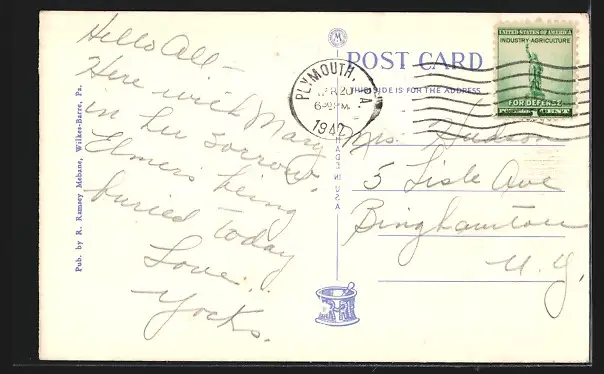 Hello All –
Here with Mary
in her sorrow.
Elmers being
buried today
Love..
Yocks.
Pub. by R. Ramsey Mebane, Wilkes-Barre, Pa.
POST CARD
THIS SIDE IS FOR THE ADDRESS
MADE IN USA
PLYMOUTH, PA
20
6 PM
1942
UNITED STATES OF AMERICA
INDUSTRY AGRICULTURE
FOR DEFENSE
CENT
Mrs. Hudson
5 Lisle Ave
Binghamton
N. Y.